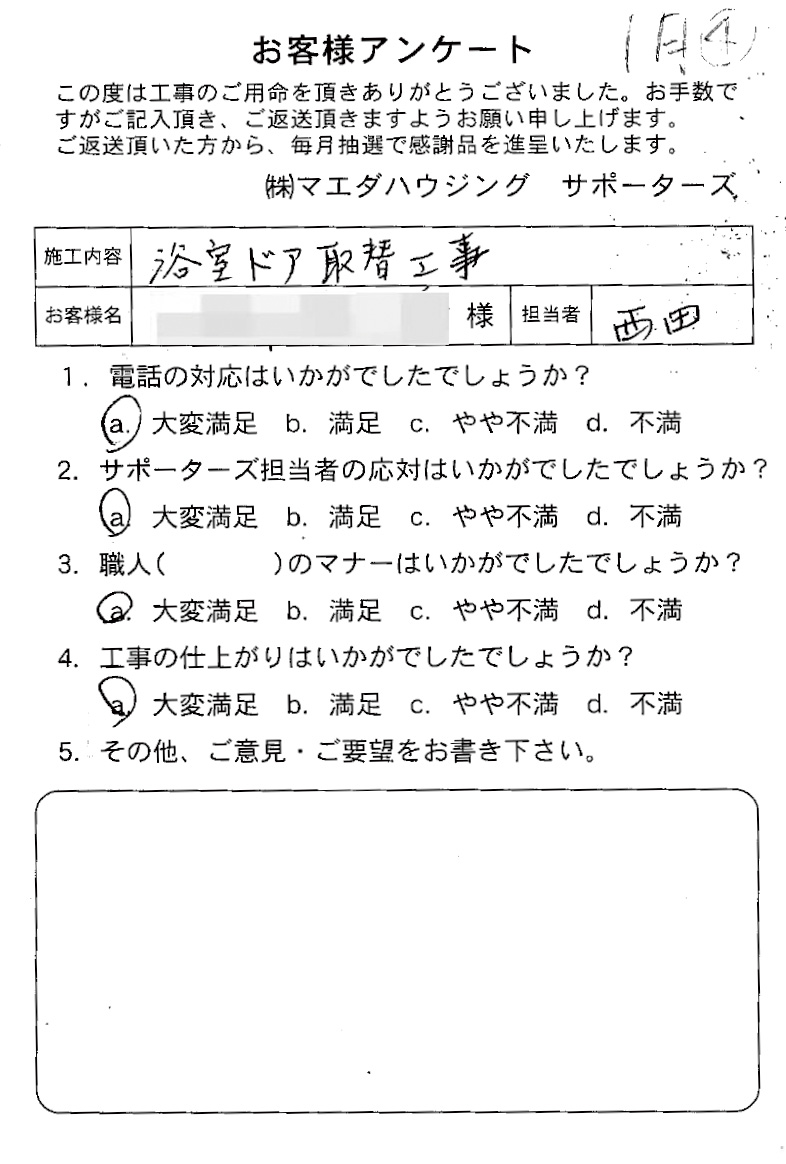 1月
お客様アンケート
この度は工事のご用命を頂きありがとうございました。お手数で
すがご記入頂き、ご返送頂きますようお願い申し上げます。
ご返送頂いた方から、毎月抽選で感謝品を進呈いたします。
㈱マエダハウジング サポーターズ
施工内容 浴室ドア取替工事
お客様名 様 担当者 西田
1. 電話の対応はいかがでしたでしょうか？
a. 大変満足 b. 満足 c. やや不満 d. 不満
2. サポーターズ担当者の応対はいかがでしたでしょうか？
a. 大変満足 b. 満足 c. やや不満 d. 不満
3. 職人( )のマナーはいかがでしたでしょうか？
a. 大変満足 b. 満足 c. やや不満 d. 不満
4. 工事の仕上がりはいかがでしたでしょうか？
a. 大変満足 b. 満足 c. やや不満 d. 不満
5. その他、ご意見・ご要望をお書き下さい。